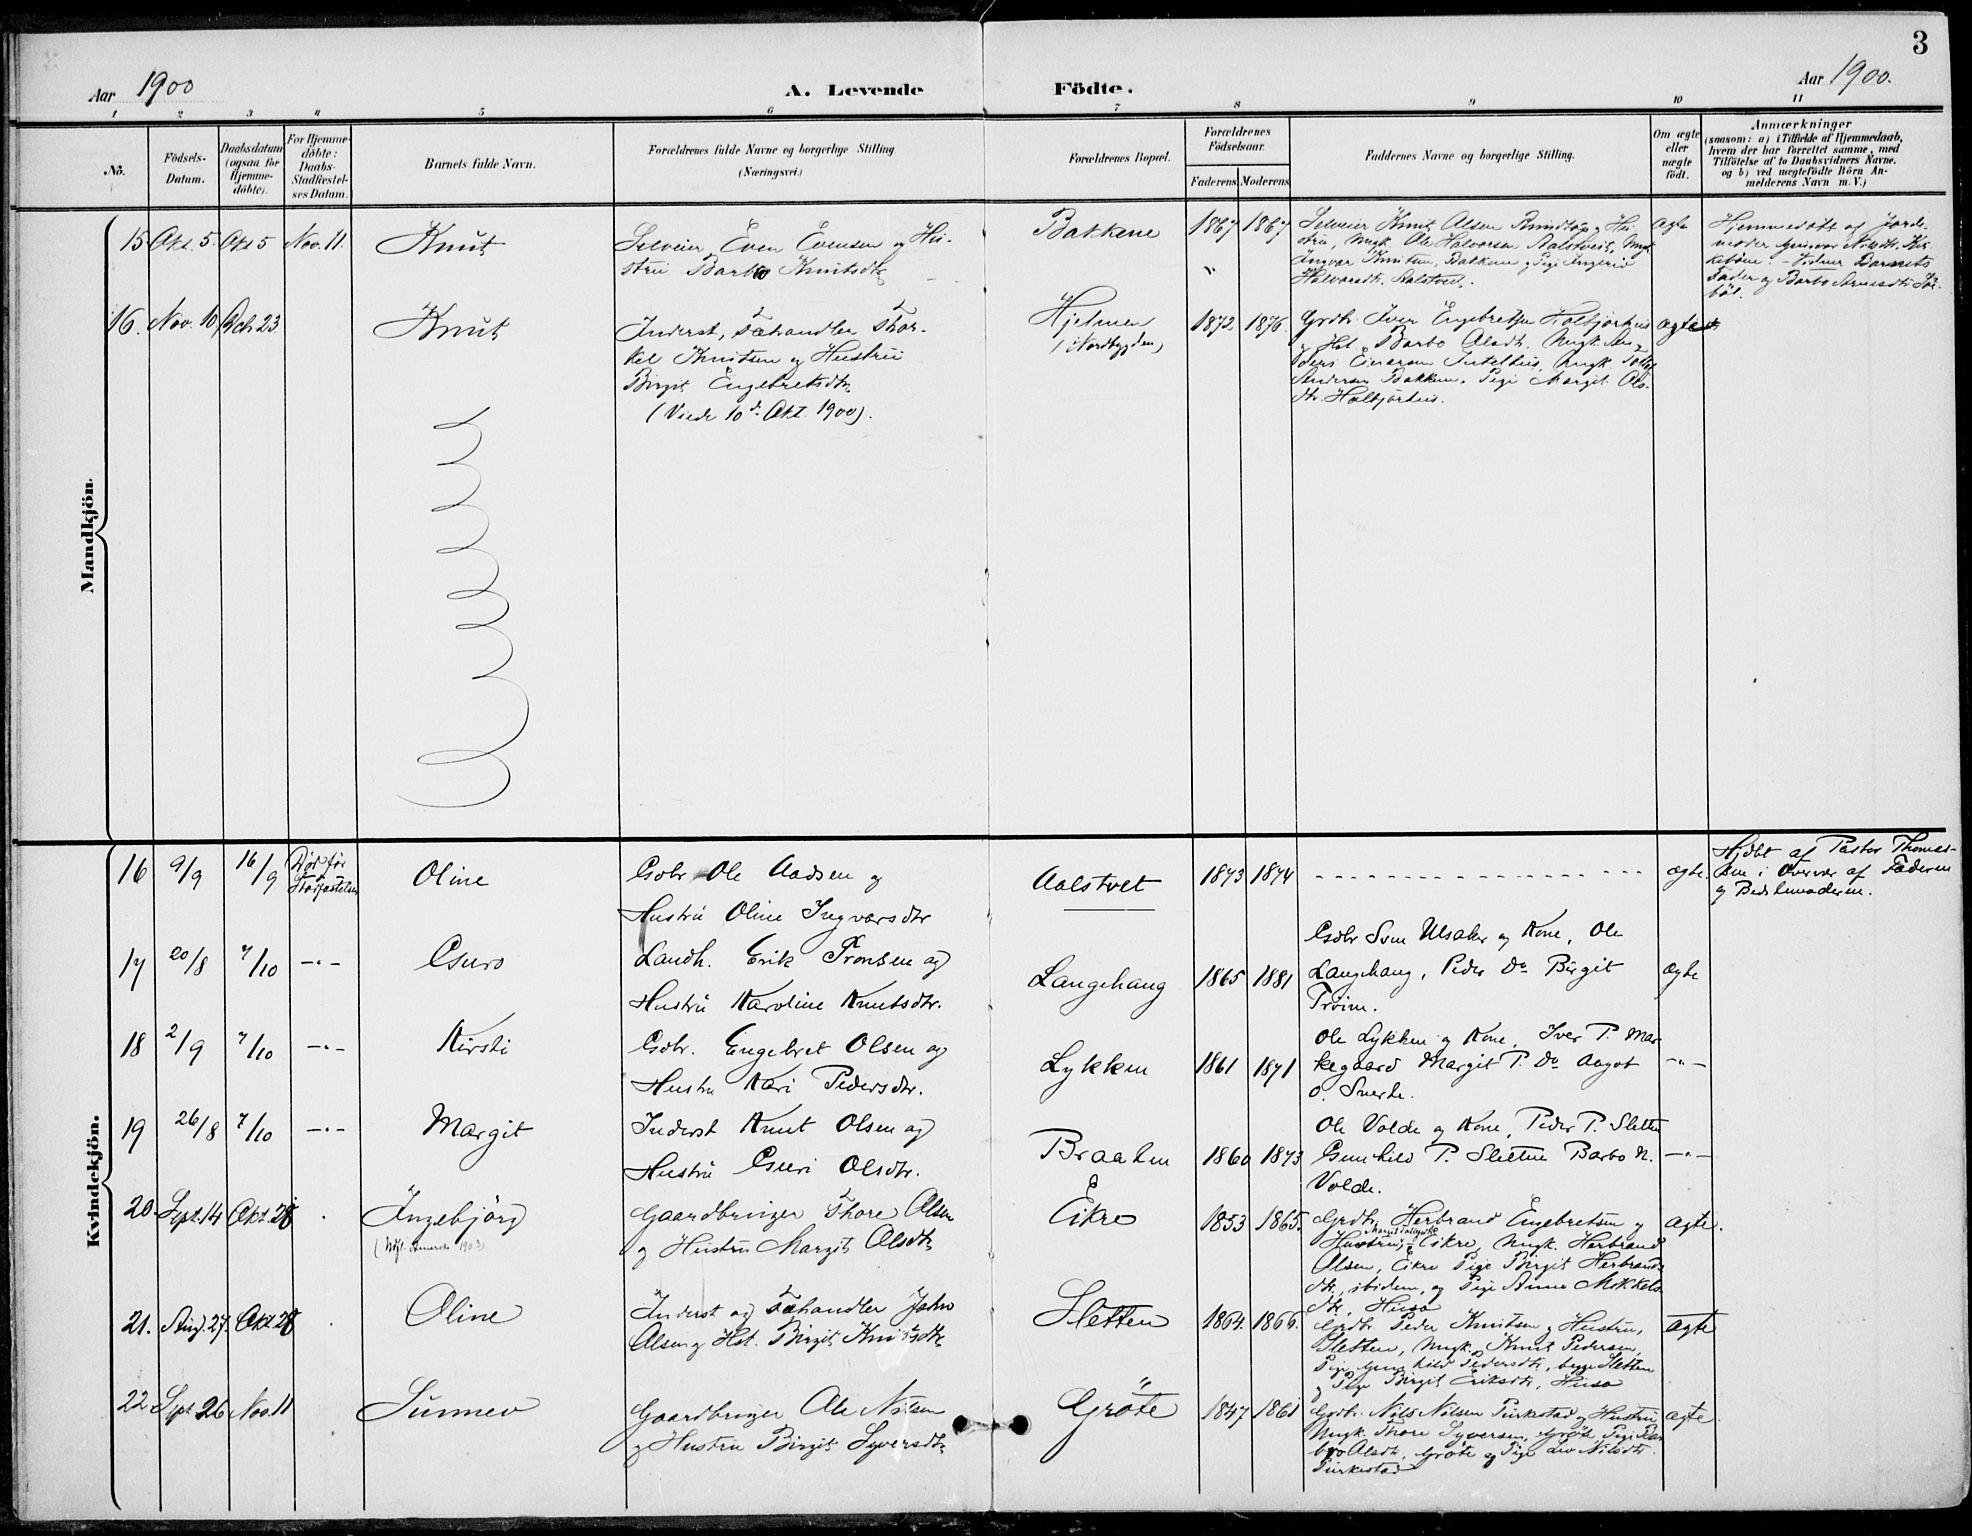 3
Aar 1900
A. Levende Födte.
Aar 1900.
1 2 3 4 5 6 7 8 9 10 11
No.
Födsels-
Datum.
Daabsdatum
(ogsaa for
Hjemme-
döbte).
For Hjemme-
döbte:
Daabs-
Stadfæstel-
ses Datum.
Barnets fulde Navn.
Forældrenes fulde Navne og borgerlige Stilling
(Næringsvei.)
Forældrenes Bopæl.
Forældrenes
Födselsaar.
Faderens. Moderens.
Faddernes Navne og borgerlige Stilling.
Om ægte
eller
uægte
födt.
Anmærkninger
(saasom: a) i Tilfælde af Hjemmedaab,
hvem der har forrettet samme, med
Tilföielse af to Daabsvidners Navne.
og b) ved uægtefödte Börn An-
melderens Navn m. V.)
Mandkjön.
15 Okt. 5. Okt 5 Nov. 11. Knut
Selveier Even Evensen og Hu-
stru Barbo Knutsdtr.
Bakkene 1867 1867
Selveier Knut Olsen og Hu-
stru, Ungk. Ole Halvorsen Aalstveit, Ungk
Ingvar Knutsen, Bakkene og Pige Ingerid
Halvorsdtr. Aalstveit.
ægte
Hjemmedöbt af Jorde-
moder Nilsdtr.
Vidner Barnets
Fader og Barbo
16. Nov. 10 Dcb. 23 Knut
Inderst, Fæhandler Thor-
kel Knutsen og Hustru
Birgit Engebretsdtr.
(Viede 10de Okt. 1900).
Hjelmen
(Nordbygden)
1872. 1876.
Grdbr. Iver Engebretsen
og Hst. Barbo Olsdtr. Ungk.
Ungk.
Andersen Bakken. Pige Margit Ols-
dtr.
ægte
Kvindekjön.
16 9/9 16/9 Död för
Stadfæstelsen
Oline
Gdbr Ole Aadsen og
Hustru Oline Ingvarsdtr
Aalstvet 1873 1874
ægte.
Hjdbt af Pastor Thomas-
sen i Overvær af Faderen
og Bedstemoderen.
17 20/8 7/10 -"- Guro
Landh. Erik Tronsen og
Hustru Karoline Knutsdtr.
Langehaug 1865 1881
Gdbr Sven Ulsaker og Kone, Ole
Langehaug, Peder Do Birgit
Trøim.
ægte
18 2/9 7/10 -"- Kirsti
Gdbr. Engebret Olsen og
Hustru Kari Pedersdtr.
Lykken 1861 1871
Ole Lykken og Kone, Iver P. Mar-
kegaard Margit P. Do Aagot
O. Snerte.
-"-
19 26/8 7/10 -"- Margit
Inderst Knut Olsen og
Hustru Guri Olsdtr.
Braaten 1860 1873
Ole Volde og Kone, Peder P. Sletten
Gunhild P. Sletten Barbo N.
Volde.
-"-
20. Spt. 14 Okt. 28 Ingebjörg
Gaardbruger Thore Olsen
og Hustru Margit Olsdtr.
Eikre 1853 1865.
Grdbr. Herbrand Engebretsen og
Hustru, Eikre, Ungk. Herbrand
Olsen, Eikre Pige Birgit Herbrands-
dtr., ibidem, og Pige Anne Mikkels-
dtr., Huso
ægte.
21. Aug. 27. Okt. 28 Oline
Inderst og Fæhandler John
Olsen og Hst. Birgit Knutsdtr.
Sletten 1864. 1866.
Grdbr. Peder Knutsen og Hustru,
Sletten, Ungk. Knut Pedersen,
Pige Gunhild Pedersdtr., begge Sletten
og Pige Birgit Eriksdtr., Huso
ægte
22 Spt. 26 Nov. 11 Sunnev
Gaardbruger Ole Nilsen
og Hustru Birgit Syversdtr.
Gröte 1847 1861
Grdbr. Nils Nilsen Turkestad og Hustru
Ungk. Thore Syversen, Gröte Pige Bar-
bro Olsdtr. Gröte og Pige Liv Nilsdtr.
Turkestad
ægte.